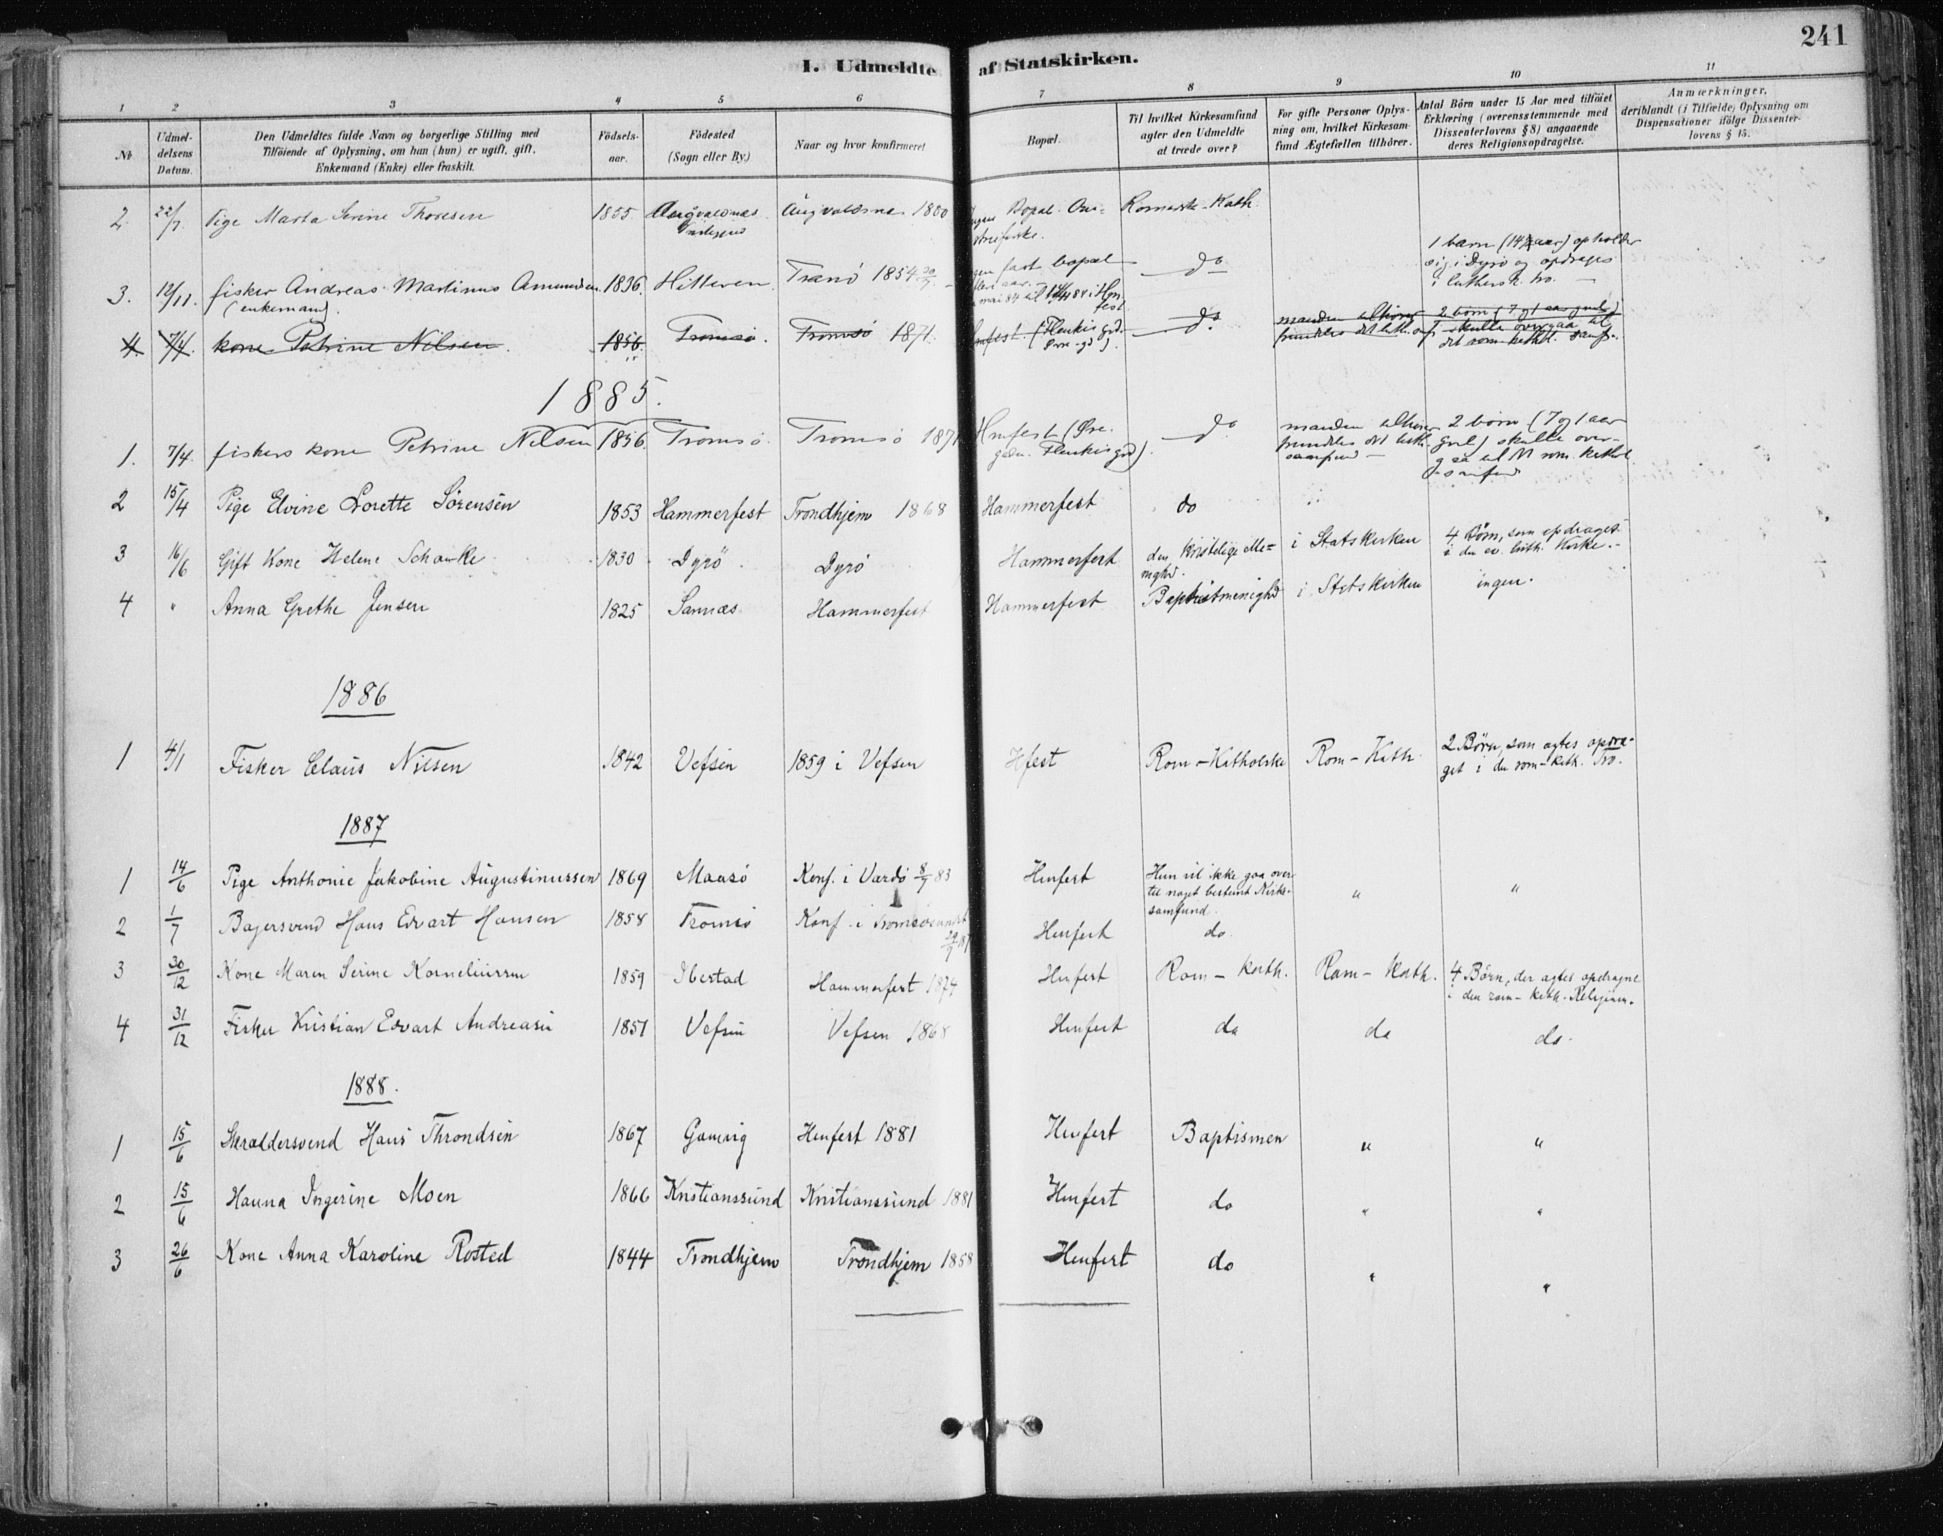 241
I. Udmeldte af Statskirken.
1 2 3 4 5 6 7 8 9 10 11
No
Udmeldelsens Datum.
Den Udmeldtes fulde Navn og borgerlige Stilling med
Tilföiende af Oplysning, om han (hun) er ugift, gift,
Enkemand (Enke) eller fraskilt.
Födselsaar.
Födested
(Sogn eller By.)
Naar og hvor konfirmeret
Bopæl.
Til hvilket Kirkesamfund
agter den Udmeldte
at træde over?
For gifte Personer Oplysning om, hvilket Kirkesamfund Ægtefællen tilhörer.
Antal Börn under 15 Aar med tilföiet
Erklæring (overensstemmende med
Dissenterlovens § 8) angaaende
deres Religionsopdragelse.
Anmærkninger,
deriblandt (i Tilfælde) Oplysning om
Dispensationer ifölge Dissenterlovens § 15.
2. 22/7. Pige Marta Serine Thoresen 1855 Augvaldnæs Augvaldsnes 1880 Bopæl. Romersk-Kath.
3. 12/11. fisker Andreas Martinus Amundsen 1836. Hitteren. Tranö 1854 fast bopæl do 1 barn (14 aar) opholder
(enkemand). sig i Dyrö og opdrages
i luthersk tro.
4. 7/4. kone Petrine Nilsen. 1856 Tromsö. Tromsö 1871. do manden tilhörer 2 born (7 og 1 aar gml)
skulle overgaa til
det rom. kathol. samf.
1885.
1. 7/4. fiskers kone Petrine Nilsen 1856. Tromsö. Tromsö 1871 Hmfest (Øre- do manden tilhörer 2 börn (7 og 1 aar
fremdeles det luth. gml) skulle over-
samfund gaa til rom. kathol.
samfund
2 15/4 Pige Elvine Lorette Sörensen 1853 Hammerfest Trondhjem 1868 Hammerfest do
3 16/6 Gift Kone Helene Schanke 1830 Dyrö Dyrö Hammerfest den kristelige me- i Statskirken 4 Börn, som opdraget
nighd. i den ev. luth. Kirke.
4 " Anna Grethe Jensen 1825 Sannæs Hammerfest Hammerfest Baptistmenighd i Statskirken ingen.
1886
1 4/1 Fisker Claus Nilsen 1842 Vefsen 1859 i Vefsen Hfest Rom-Katholske Rom-Kath 2 Börn, som agtes opdra-
get i den rom-kath. Tro.
1887
1 14/6 Pige Anthonie Jakobine Augustinussen 1869 Maasö Konf. i Vardö 8/7 83 Hmfest Hun vil ikke gaa over " "
til noget bestemt Kirke-
samfund.
2 1/7 Bagersvend Hans Edvart Hansen 1858 Tromsö Konf. i Hmfest do
3 30/12 Kone Maren Serine Korneliussen 1859 Ibestad Hammerfest 1874 Hmfest Rom-kath. Rom-Kath. 4 Börn, der agtes opdragne
i den rom-kath. Religion.
4 31/12 Fisker Kristian Edvart Andreasen 1851 Vefsen Vefsen 1868 Hmfest do do do.
1888.
1 15/6 Skræddersvend Hans Throndsen 1867 Gamvig Hmfest 1881 Hmfest Baptismen " "
2 15/6 Hanna Ingerine Moen 1866 Kristianssund Kristianssund 1881 Hmfest do " "
3 26/6 Kone Anna Karoline Rosted 1844 Trondhjem Trondhjem 1858 Hmfest do " "